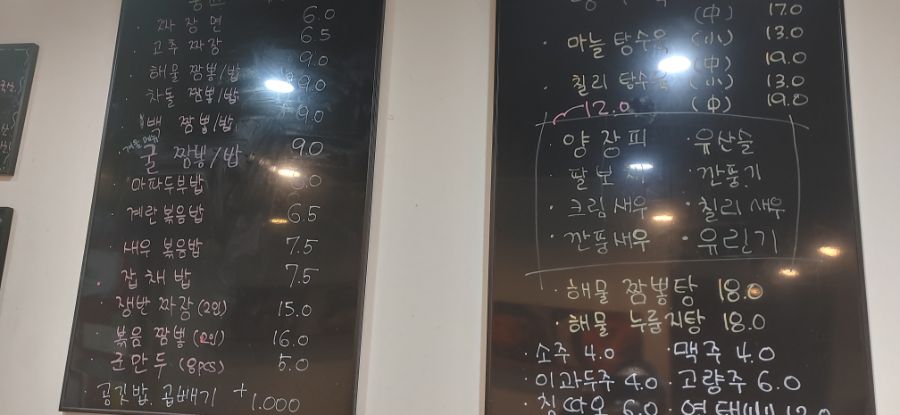 짜장면 6.0
고추 짜장 6.5
해물 짬뽕/밥 9.0
차돌 짬뽕/밥 9.0
백 짬뽕/밥 9.0
굴 짬뽕/밥 9.0
마파두부밥
계란 볶음밥 6.5
새우 볶음밥 7.5
잡채밥 7.5
쟁반 짜장 (2인) 15.0
볶음 짬뽕 (2인) 16.0
군만두 (8pcs) 5.0
공깃밥. 곱빼기 + 1.000
(中) 17.0
마늘 탕수육 (小) 13.0
(中) 19.0
칠리 탕수육 (小) 13.0
(中) 19.0
12.0
양장피 · 유산슬
깐풍기
크림새우 · 칠리새우
깐풍새우 · 유린기
해물 짬뽕탕 18.0
해물 누룽지탕 18.0
소주 4.0 · 맥주 4.0
이과두주 4.0 · 고량주 6.0
칭따오 6.0